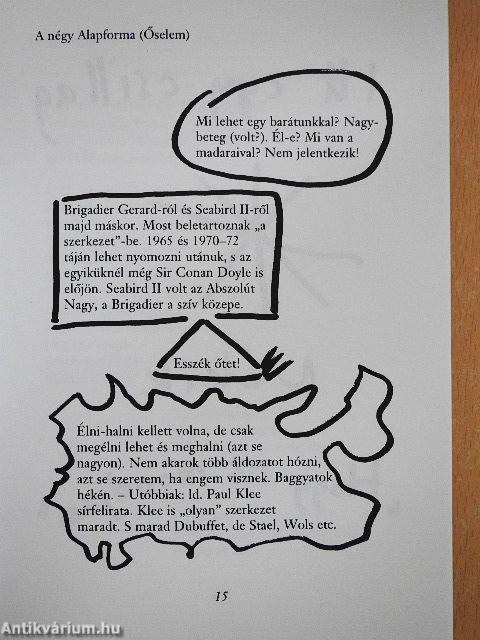 A négy Alapforma (Őselem)
Mi lehet egy barátunkkal? Nagy-
beteg (volt?). Él-e? Mi van a
madaraival? Nem jelentkezik!
Brigadier Gerard-ról és Seabird II-ről
majd máskor. Most beletartoznak „a
szerkezet"-be. 1965 és 1970–72
táján lehet nyomozni utánuk, s az
egyiküknél még Sir Conan Doyle is
előjön. Seabird II volt az Abszolút
Nagy, a Brigadier a szív közepe.
Esszék őtet!
Élni-halni kellett volna, de csak
megélni lehet és meghalni (azt se
nagyon). Nem akarok több áldozatot hózni,
azt se szeretem, ha engem visznek. Baggyatok
hékén. – Utóbbiak: ld. Paul Klee
sírfelirata. Klee is „olyan" szerkezet
maradt. S marad Dubuffet, de Stael, Wols etc.
15
Antikvárium.hu